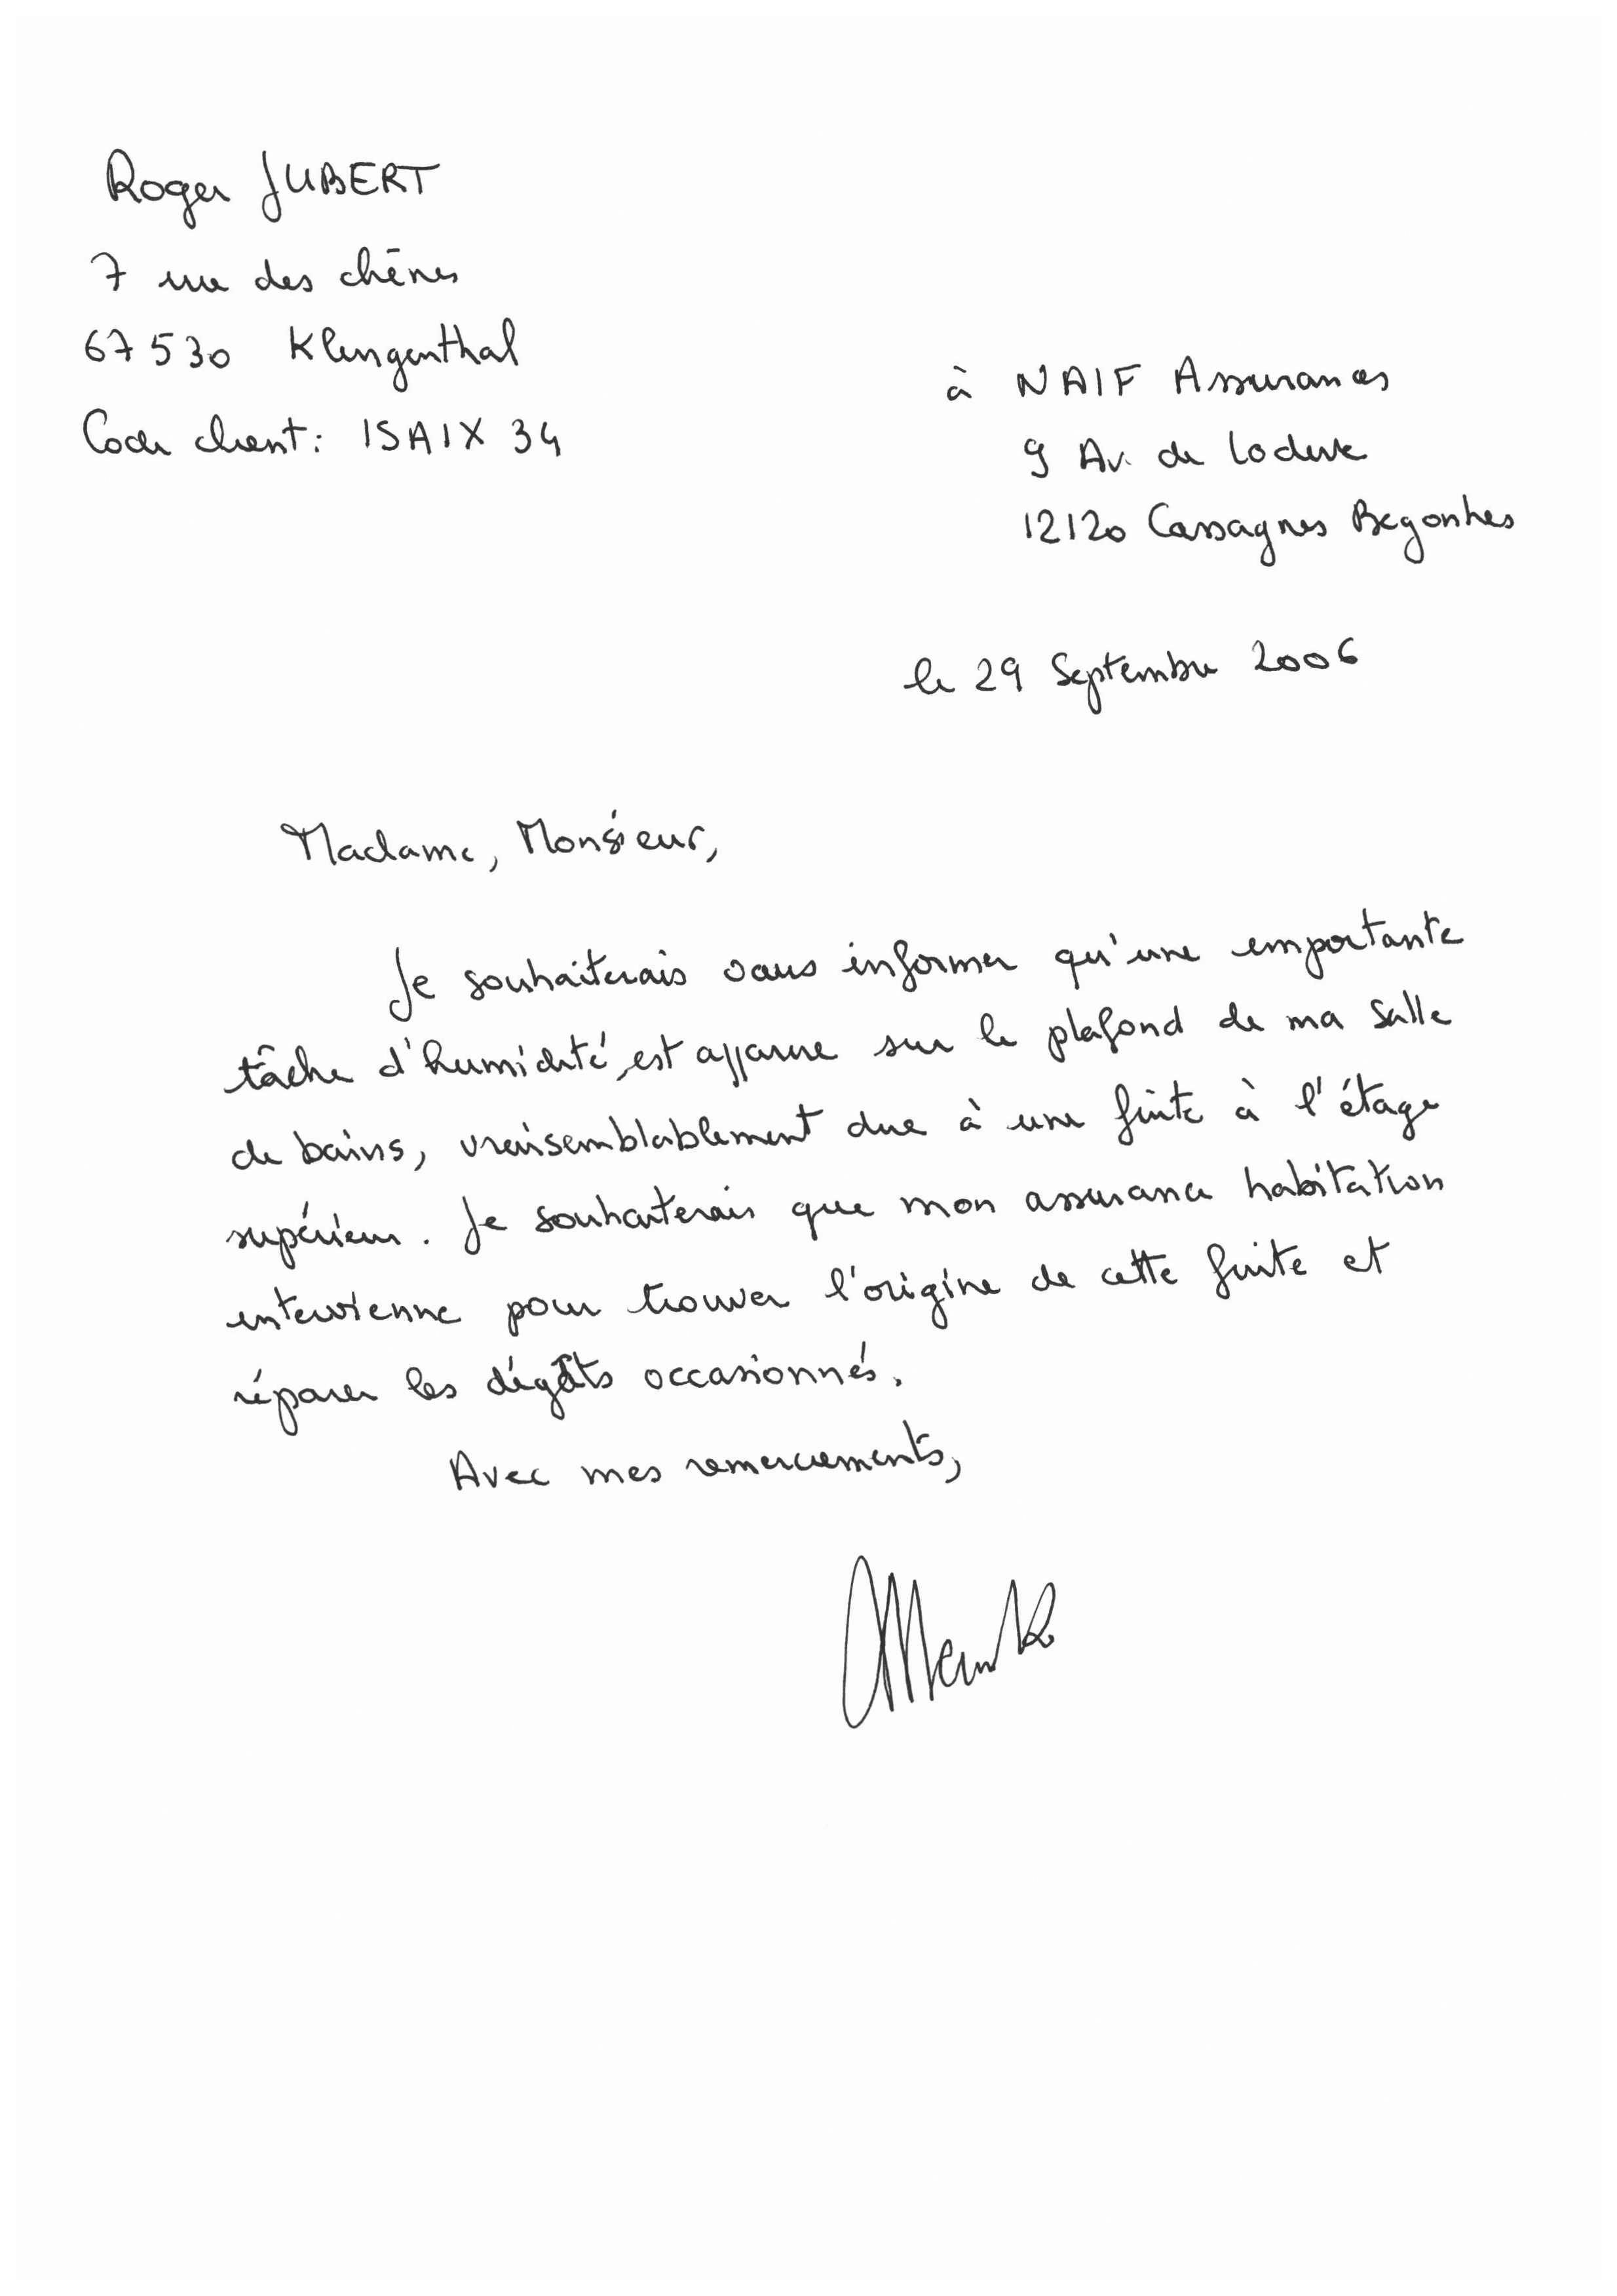 Roger JUBERT
7 rue des chênes
67530 Klingenthal
Code client : ISAIX 34
à NAIF Assurances
9 Av. de Lodeve
12120 Cassagnes Begonhes
le 29 Septembre 2006
Madame, Monsieur,
Je souhaiterais vous informer qu'une importante
tâche d'humidité, est apparue sur le plafond de ma salle
de bains, vraisemblablement due à une fuite à l'étage
supérieur. Je souhaiterais que mon assurance habitation
intervienne pour trouver l'origine de cette fuite et
réparer les dégâts occasionnés.
Avec mes remerciements,